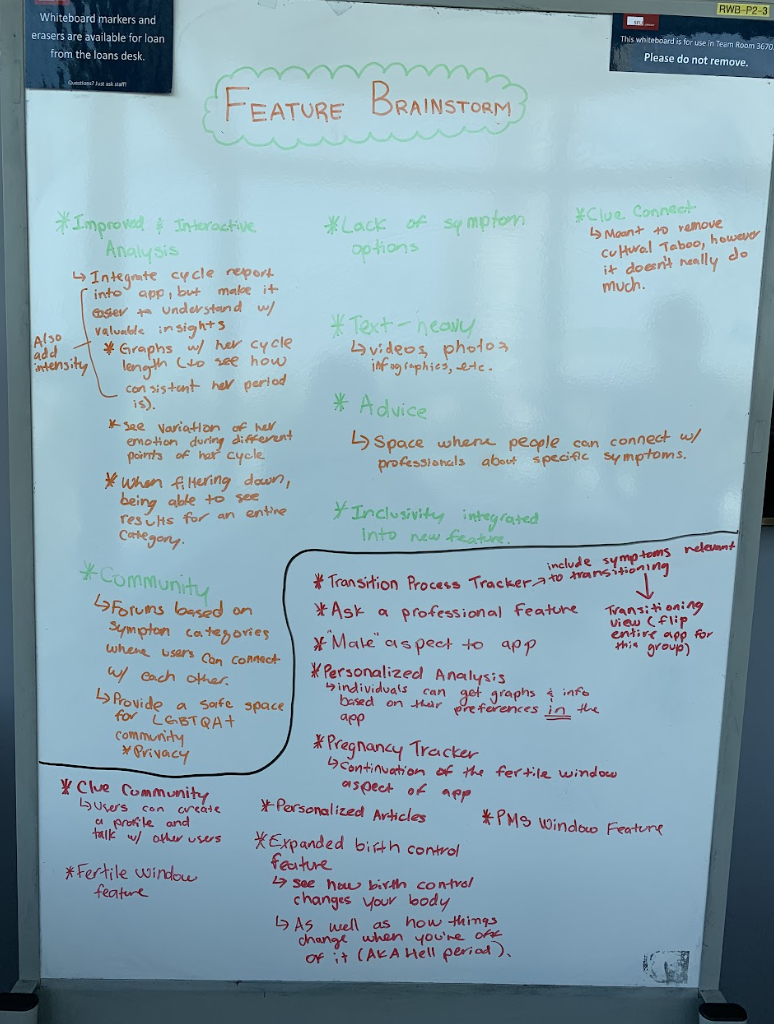 Whiteboard markers and
erasers are available for loan
from the loans desk.
Questions? Just ask staff!
RWB-P2-3
This whiteboard is for use in Team Room 3670.
Please do not remove.
FEATURE BRAINSTORM
*Improved & Interactive
Analysis
↳ Integrate cycle report
into app, but make it
easier to understand w/
valuable insights
* Graphs w/ her cycle
length (to see how
consistent her period
is).
Also
add
intensity
* See variation of her
emotion during different
points of her cycle
* When filtering down,
being able to see
results for an entire
category.
*Community
↳Forums based on
symptom categories
where users can connect
w/ each other.
↳Provide a safe space
for LGBTQA+
community
*Privacy
*Lack of symptom
options
*Text-heavy
↳videos, photos,
infographics, etc.
* Advice
↳ Space where people can connect w/
professionals about specific symptoms.
*Inclusivity integrated
into new feature.
*Clue Connect
↳Meant to remove
cultural Taboo, however
it doesn't really do
much.
*Transition Process Tracker→
include symptoms relevant
to transitioning
↓
Transitioning
view (flip
entire app for
this group)
*Ask a professional Feature
*"Male" aspect to app
*Personalized Analysis
↳individuals can get graphs & info
based on their preferences in the
app
*Pregnancy Tracker
↳continuation of the fertile window
aspect of app
* Clue Community
↳Users can create
a profile and
talk w/ other users
*Fertile Window
feature
*Personalized Articles
*PMS Window Feature
*Expanded birth control
feature
↳ see how birth control
changes your body
↳ As well as how things
change when you're off
of it (AKA Hell period).